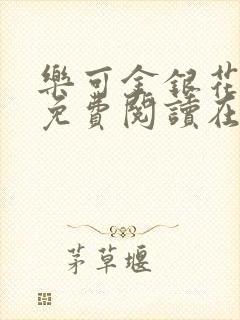 樂可金銀花
免費閱讀在
茅草堰